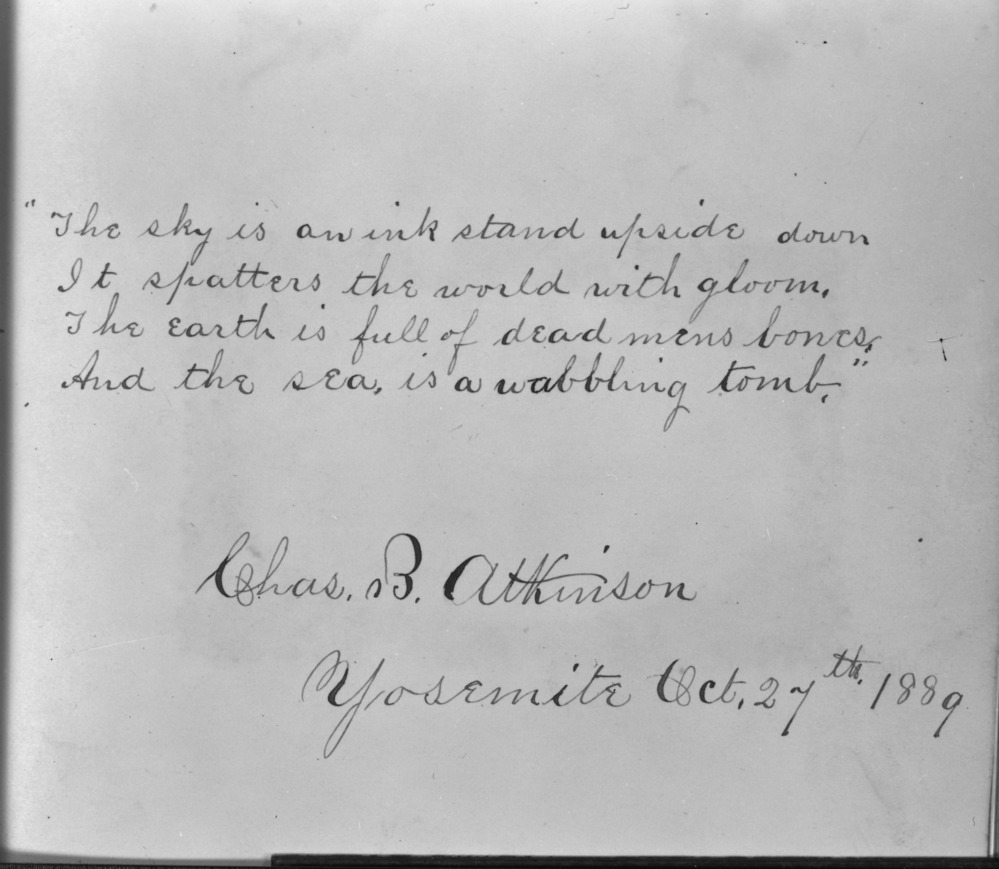 "The sky is an ink stand upside down
It spatters the world with gloom.
The earth is full of dead mens bones,
And the sea, is a wabbling tomb,"
Chas. B. Atkinson
Yosemite Oct. 27th. 1889